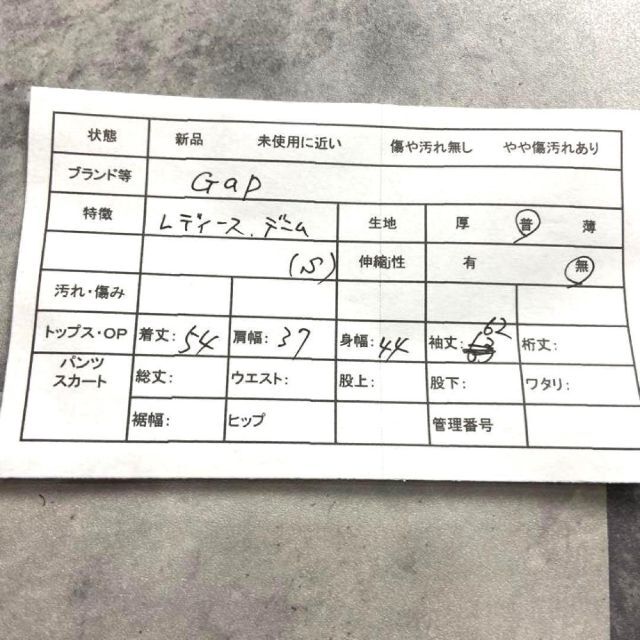 状態 新品 未使用に近い 傷や汚れ無し やや傷汚れあり
ブランド等 Gap
特徴 レディース、デニム 生地 厚 普 薄
(S) 伸縮性 有 無
汚れ・傷み
62
トップス・OP 着丈: 54 肩幅: 37 身幅: 44 袖丈: 桁丈:
パンツ
スカート 総丈: ウエスト: 股上: 股下: ワタリ:
裾幅: ヒップ 管理番号